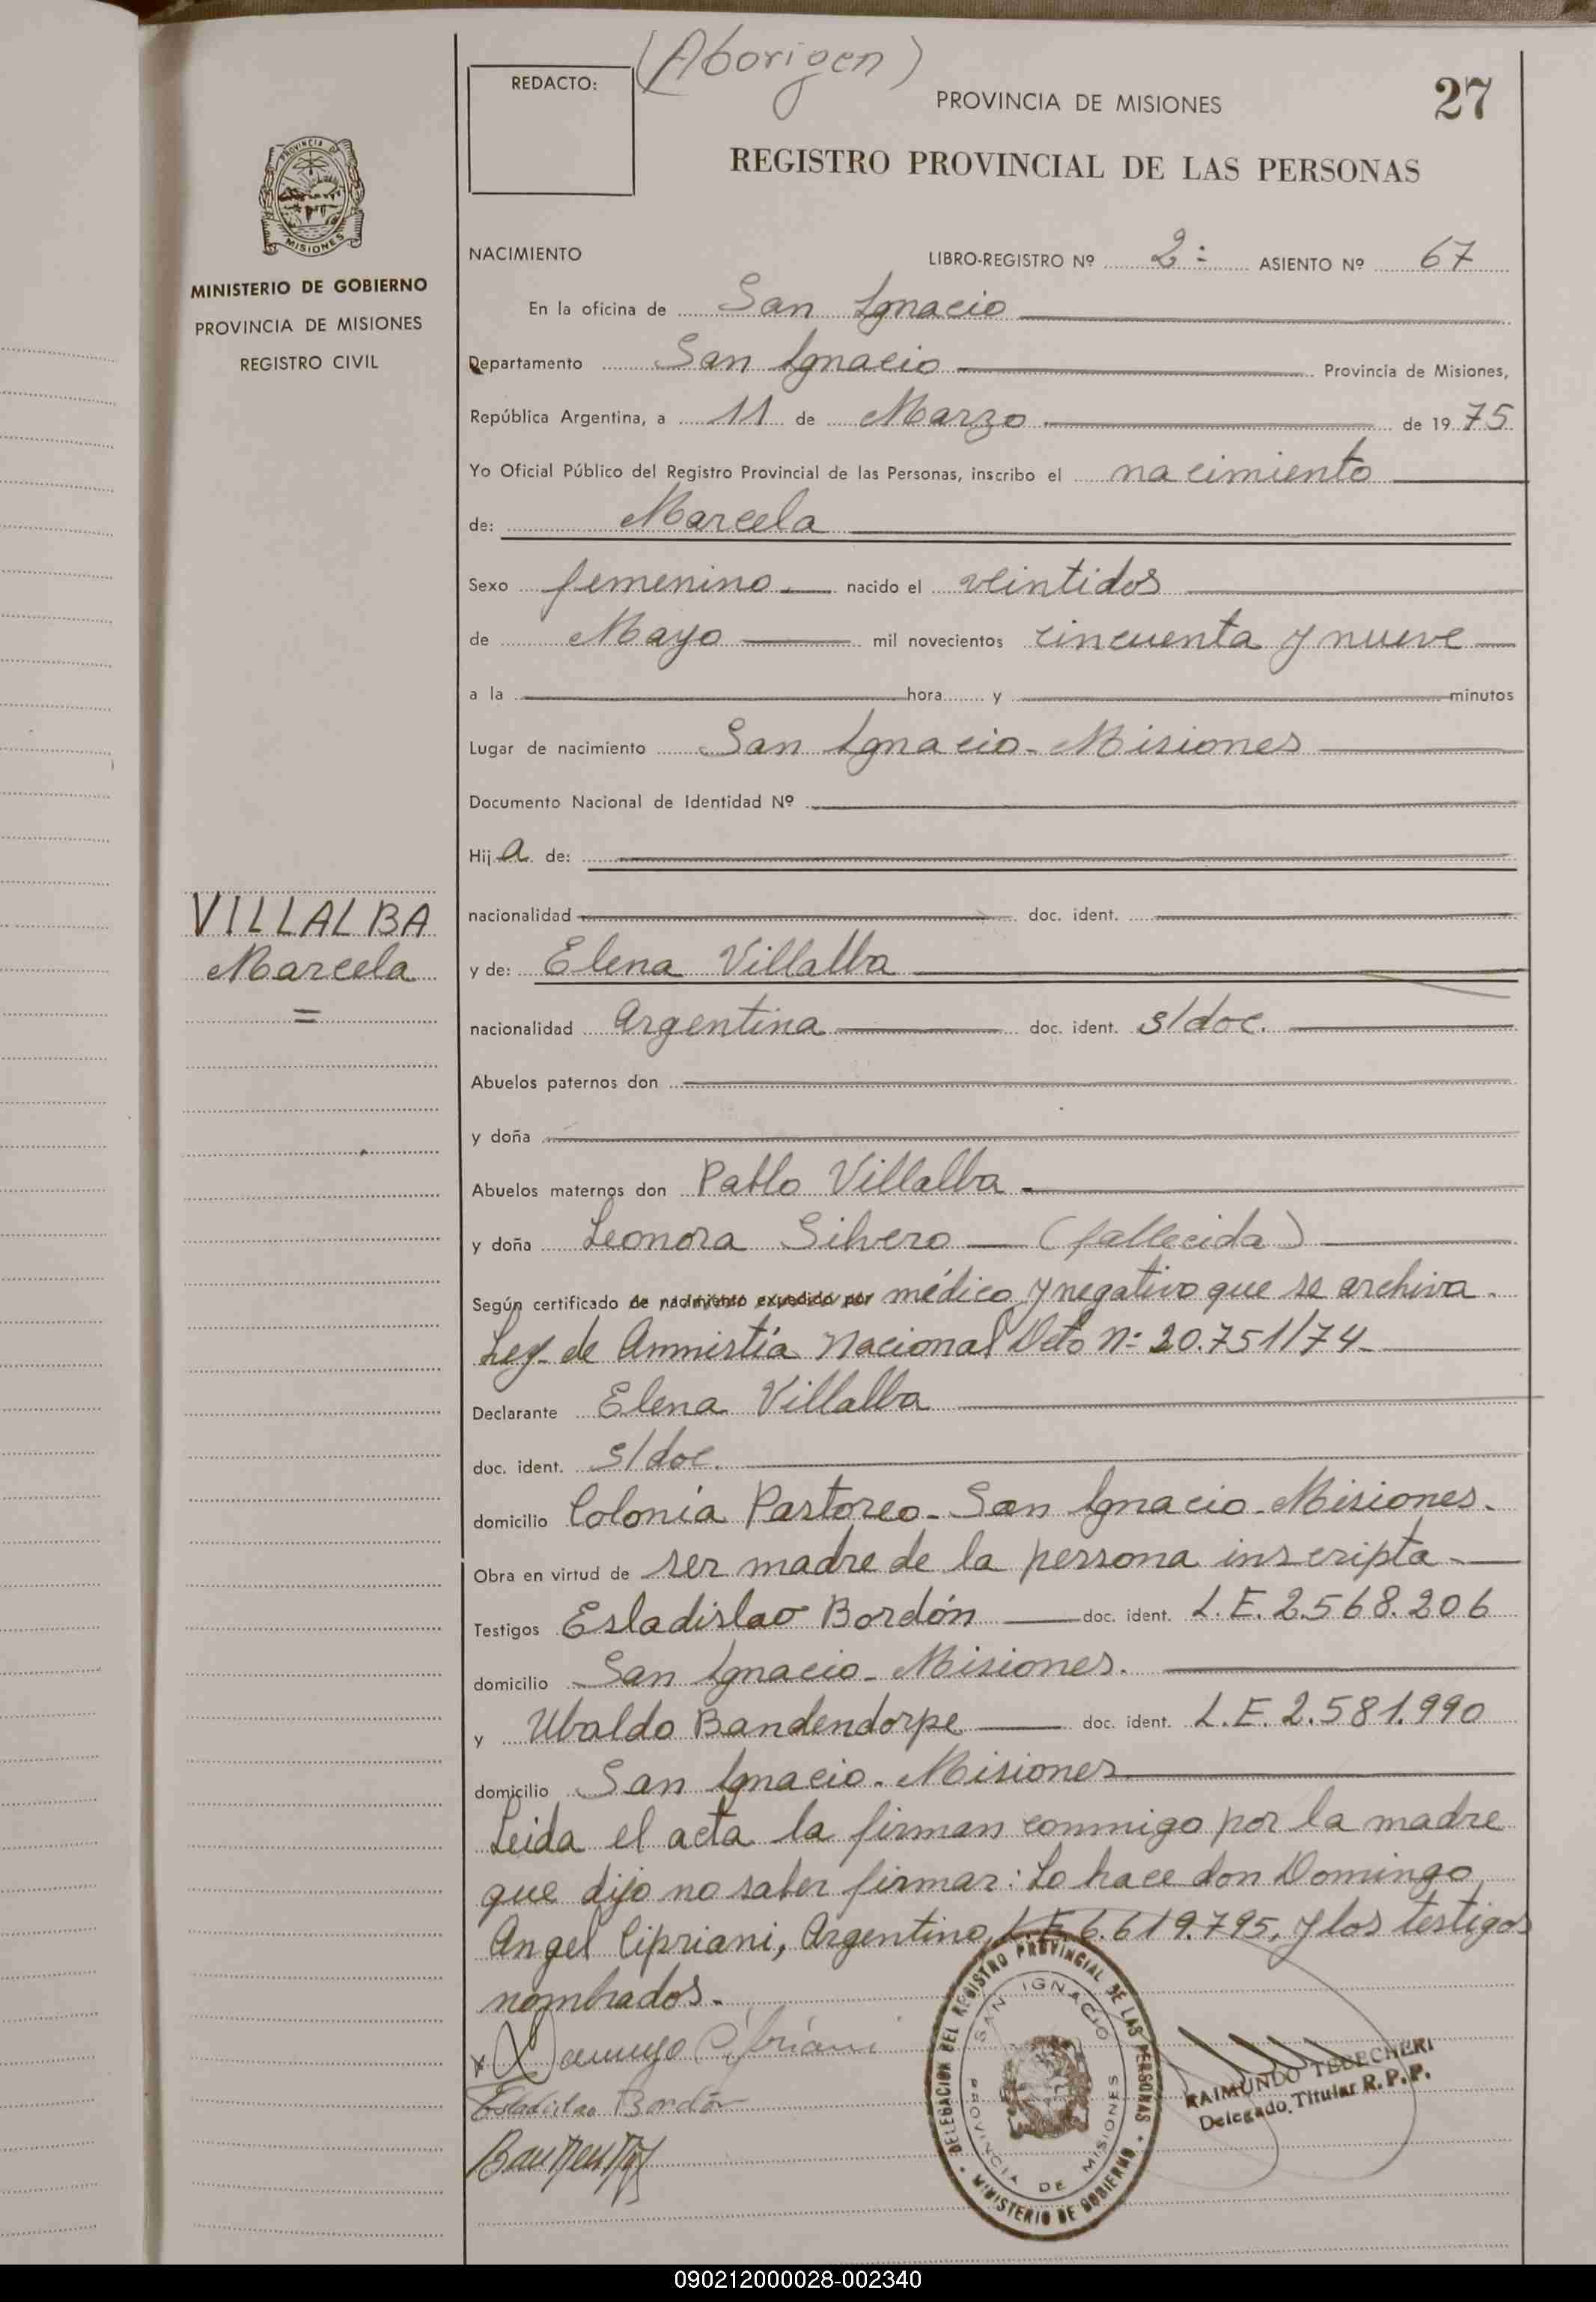 (Aborigen)
REDACTO:
PROVINCIA DE MISIONES
27
REGISTRO PROVINCIAL DE LAS PERSONAS
PROVINCIA DE
MISIONES
MINISTERIO DE GOBIERNO
PROVINCIA DE MISIONES
REGISTRO CIVIL
VILLALBA
Marcela
=
NACIMIENTO LIBRO-REGISTRO Nº 2=- ASIENTO Nº 67
En la oficina de San Ignacio
Departamento San Ignacio Provincia de Misiones,
República Argentina, a 11 de Marzo de 1975
Yo Oficial Público del Registro Provincial de las Personas, inscribo el nacimiento
de: Marcela
Sexo femenino nacido el veintidos
de Mayo mil novecientos cincuenta y nueve
a la hora y minutos
Lugar de nacimiento San Ignacio - Misiones
Documento Nacional de Identidad Nº
Hija de:
nacionalidad doc. ident.
y de: Elena Villalba
nacionalidad Argentina doc. ident. s/doc.
Abuelos paternos don
y doña
Abuelos maternos don Pablo Villalba
y doña Leonora Silvero — (fallecida)
Según certificado de nacimiento expedido por médico y negativo que se archiva.
Ley de Amnistía Nacional Dcto Nº 20.751/74
Declarante Elena Villalba
doc. ident. s/doc.
domicilio Colonia Pastoreo - San Ignacio - Misiones.
Obra en virtud de ser madre de la persona inscripta
Testigos Esladislao Bordón doc. ident. L.E. 2.568.206
domicilio San Ignacio - Misiones.
y Ubaldo Bandendorpe doc. ident. L.E. 2.581.990
domicilio San Ignacio - Misiones
Leida el acta la firman conmigo por la madre
que dijo no saber firmar: Lo hace don Domingo
Angel Cipriani, Argentino, L.E. 6.619.795, y los testigos
nombrados.
x Domingo Cipriani
Estadislao Bordón
DELEGACION DEL REGISTRO PROVINCIAL DE LAS PERSONAS
MINISTERIO DE GOBIERNO
SAN IGNACIO
PROVINCIA DE MISIONES
RAIMUNDO TEDECHERI
Delegado Titular R. P. P.
090212000028-002340